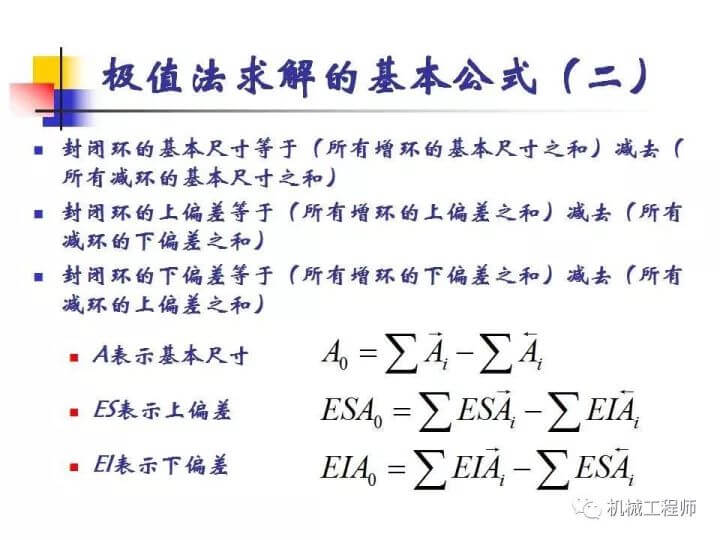 极值法求解的基本公式（二）
封闭环的基本尺寸等于（所有增环的基本尺寸之和）减去（
所有减环的基本尺寸之和）
封闭环的上偏差等于（所有增环的上偏差之和）减去（所有
减环的下偏差之和）
封闭环的下偏差等于（所有增环的下偏差之和）减去（所有
减环的上偏差之和）
A表示基本尺寸
A₀ = ∑A⃗ᵢ − ∑A⃖ᵢ
ES表示上偏差
ESA₀ = ∑ESA⃗ᵢ − ∑EIA⃖ᵢ
EI表示下偏差
EIA₀ = ∑EIA⃗ᵢ − ∑ESA⃖ᵢ
机械工程师